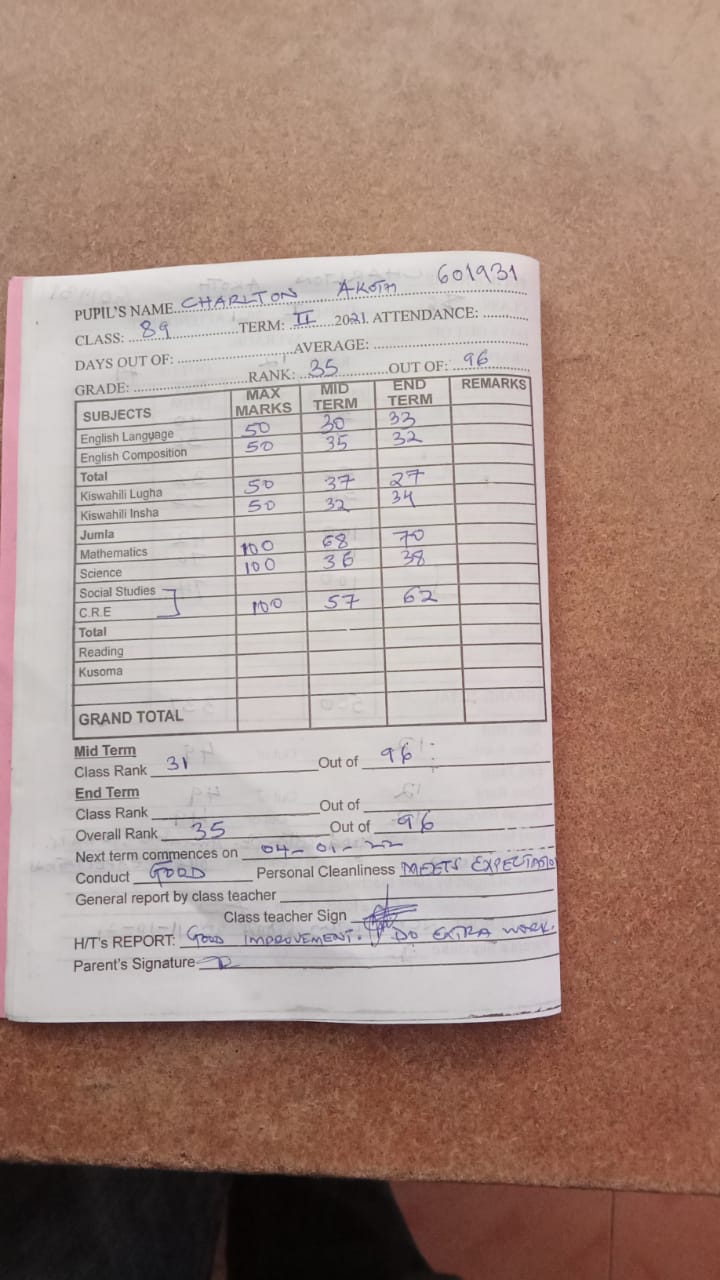 601931
PUPIL'S NAME CHARLTON AKOTH
CLASS: 89 TERM: II 2021. ATTENDANCE:
DAYS OUT OF: AVERAGE:
GRADE: RANK: 35 OUT OF: 96
SUBJECTS MAX MARKS MID TERM END TERM REMARKS
English Language 50 30 33
English Composition 50 35 32
Total
Kiswahili Lugha 50 37 27
Kiswahili Insha 50 32 34
Jumla
Mathematics 100 68 70
Science 100 36 38
Social Studies
C.R.E 100 57 62
Total
Reading
Kusoma
GRAND TOTAL
Mid Term
Class Rank 31 Out of 96
End Term
Class Rank Out of
Overall Rank 35 Out of 96
Next term commences on 04-01-22
Conduct GOOD Personal Cleanliness MEETS
General report by class teacher
Class teacher Sign
H/T's REPORT: GOOD IMPROVEMENT. DO EXTRA WORK.
Parent's Signature